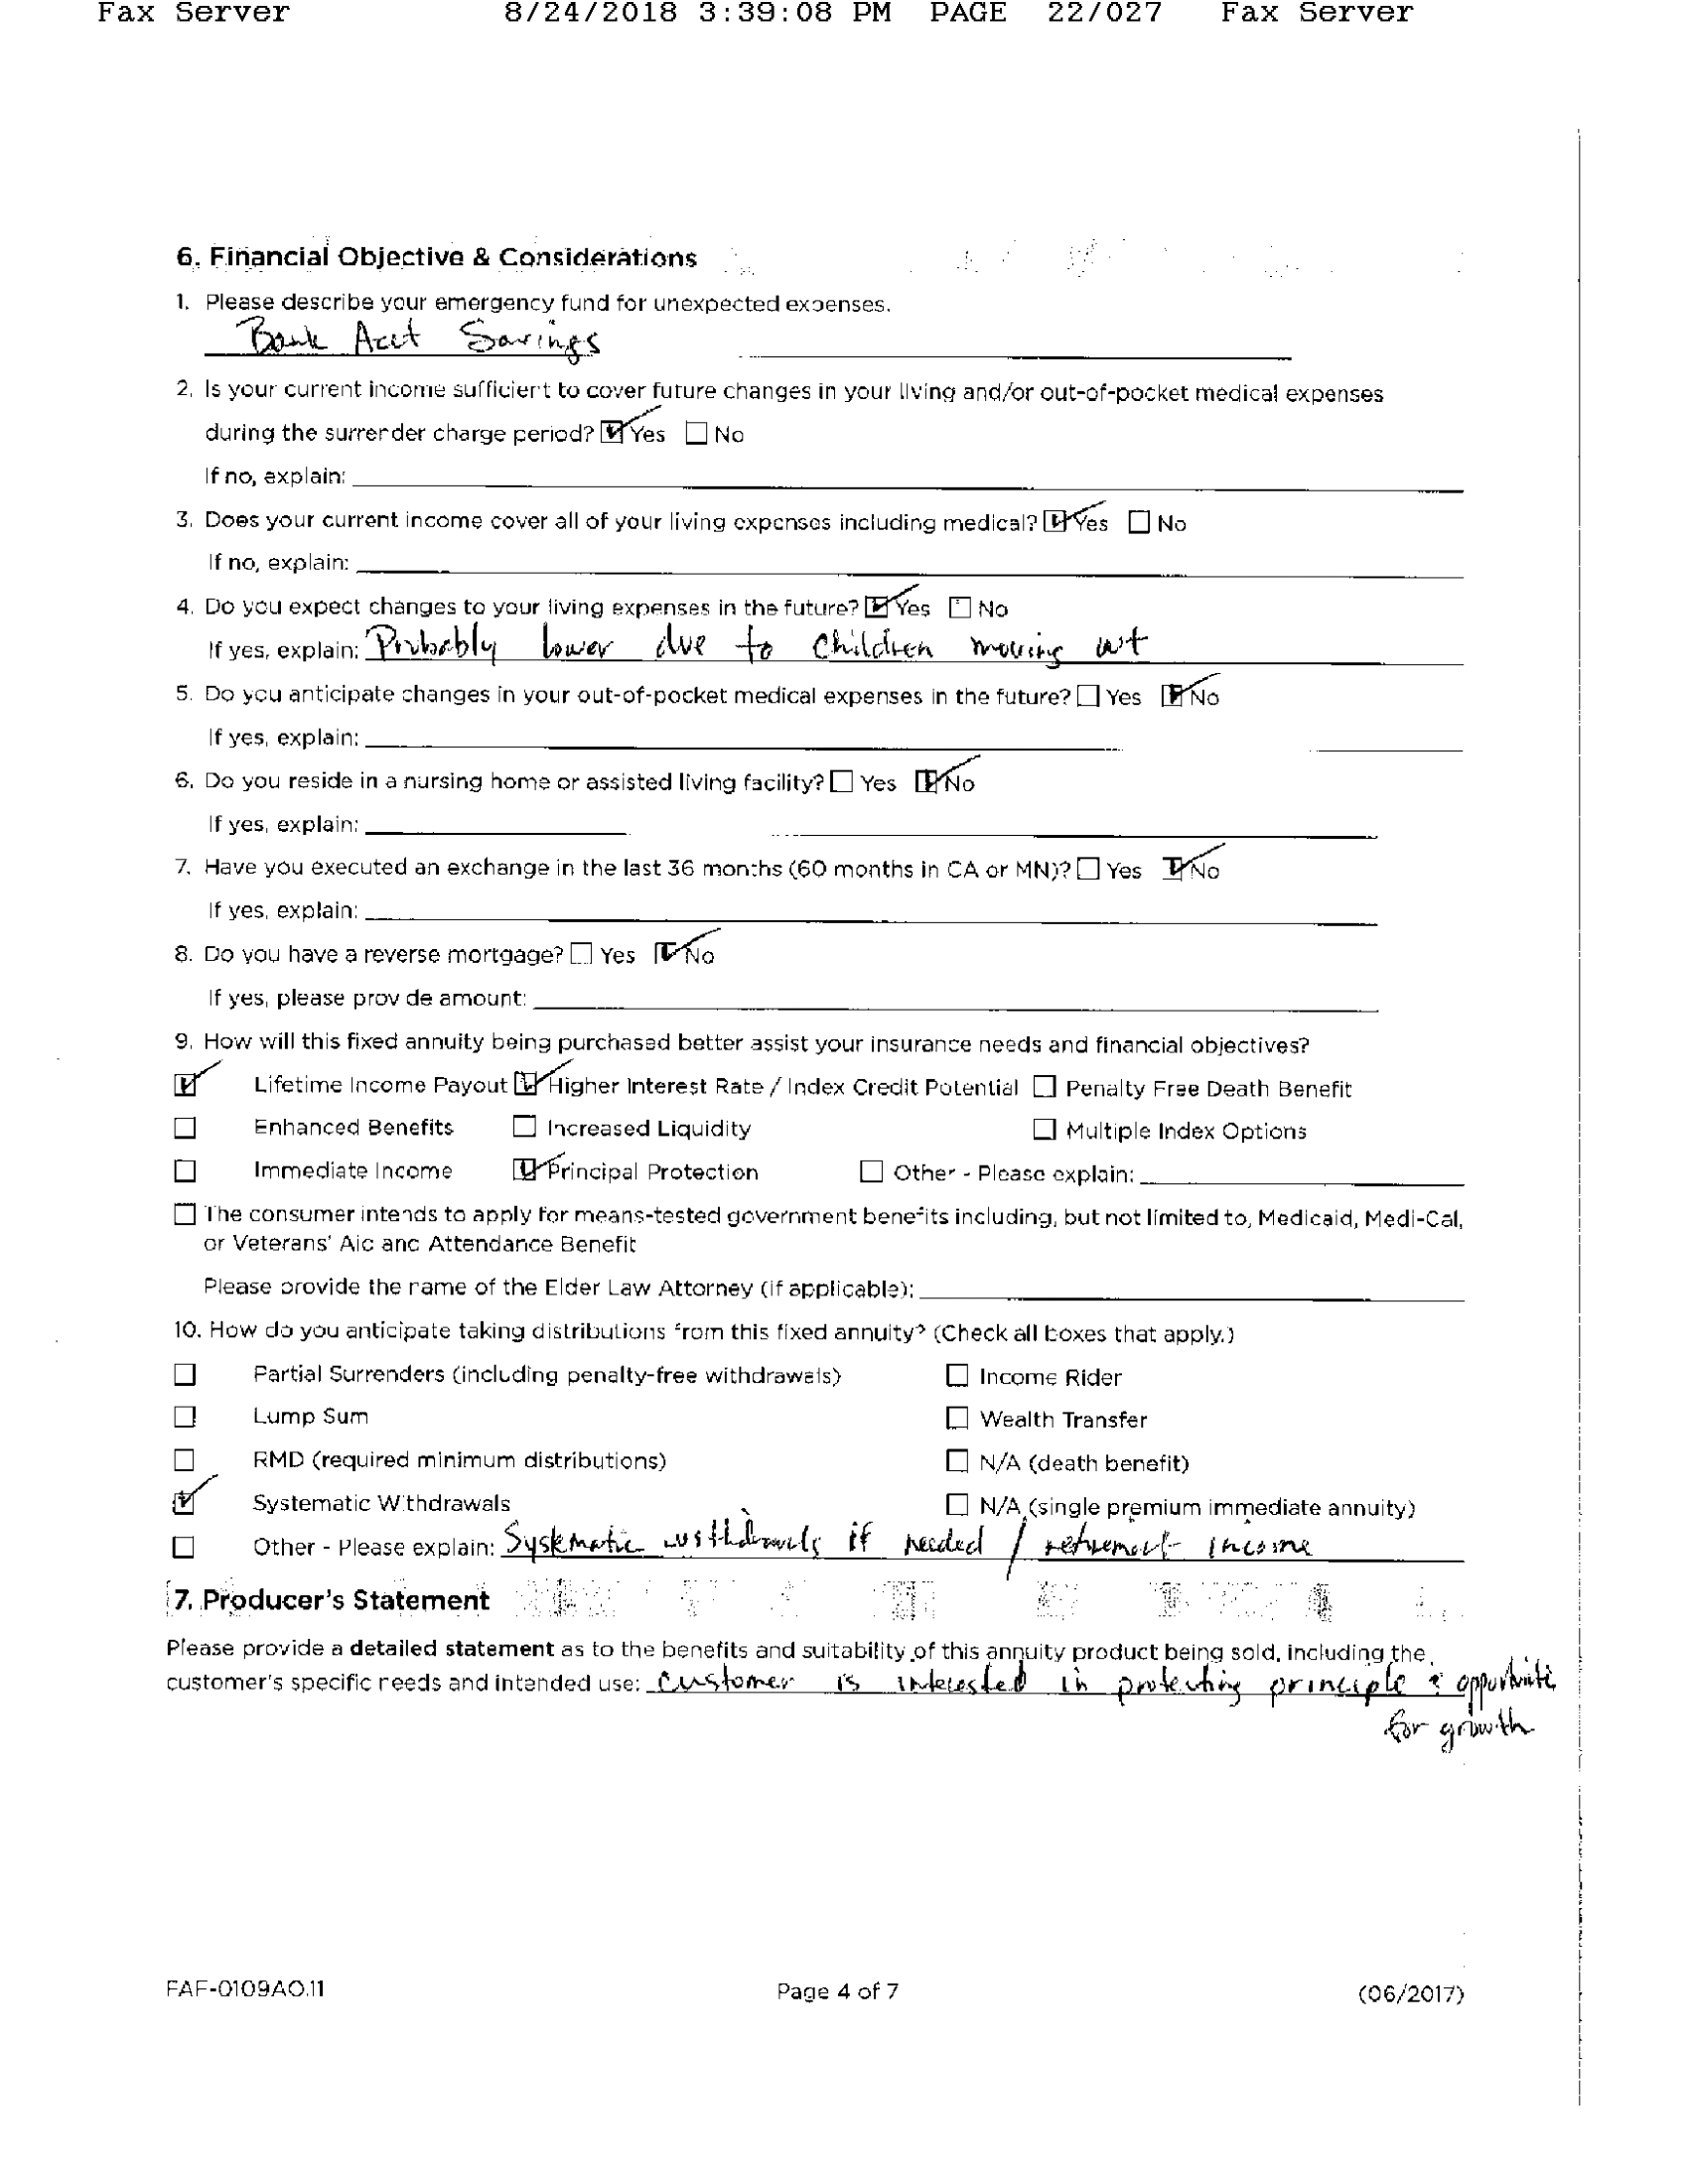 Fax Server 8/24/2018 3:39:08 PM PAGE 22/027 Fax Server
6. Financial Objective & Considerations
1. Please describe your emergency fund for unexpected expenses.
Bank Acct Savings
2. Is your current income sufficient to cover future changes in your living and/or out-of-pocket medical expenses
during the surrender charge period? ☑ Yes ☐ No
If no, explain:
3. Does your current income cover all of your living expenses including medical? ☑ Yes ☐ No
If no, explain:
4. Do you expect changes to your living expenses in the future? ☑ Yes ☐ No
If yes, explain: Probably lower due to children moving out
5. Do you anticipate changes in your out-of-pocket medical expenses in the future? ☐ Yes ☑ No
If yes, explain:
6. Do you reside in a nursing home or assisted living facility? ☐ Yes ☑ No
If yes, explain:
7. Have you executed an exchange in the last 36 months (60 months in CA or MN)? ☐ Yes ☑ No
If yes, explain:
8. Do you have a reverse mortgage? ☐ Yes ☑ No
If yes, please prov de amount:
9. How will this fixed annuity being purchased better assist your insurance needs and financial objectives?
☑ Lifetime Income Payout ☑ Higher Interest Rate / Index Credit Potential ☐ Penalty Free Death Benefit
☐ Enhanced Benefits ☐ Increased Liquidity ☐ Multiple Index Options
☐ Immediate Income ☑ Principal Protection ☐ Other - Please explain:
☐ The consumer intends to apply for means-tested government benefits including, but not limited to, Medicaid, Medi-Cal,
or Veterans' Aid and Attendance Benefit
Please provide the name of the Elder Law Attorney (if applicable):
10. How do you anticipate taking distributions from this fixed annuity? (Check all boxes that apply.)
☐ Partial Surrenders (including penalty-free withdrawals) ☐ Income Rider
☐ Lump Sum ☐ Wealth Transfer
☐ RMD (required minimum distributions) ☐ N/A (death benefit)
☑ Systematic Withdrawals ☐ N/A (single premium immediate annuity)
☐ Other - Please explain: Systematic withdrawals if needed / retirement income
7. Producer's Statement
Please provide a detailed statement as to the benefits and suitability of this annuity product being sold, including the
customer's specific needs and intended use: Customer is interested in protecting principle & opportunity
for growth
FAF-0109AO.11 Page 4 of 7 (06/2017)